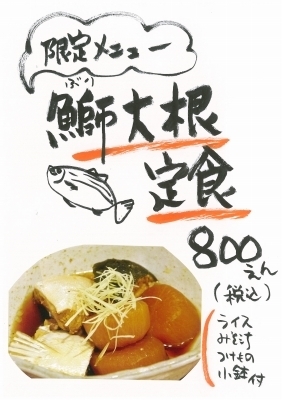 限定メニュー
ぶり
鰤大根
定食
800えん
(税込)
ライス
みそ汁
つけもの
小鉢付